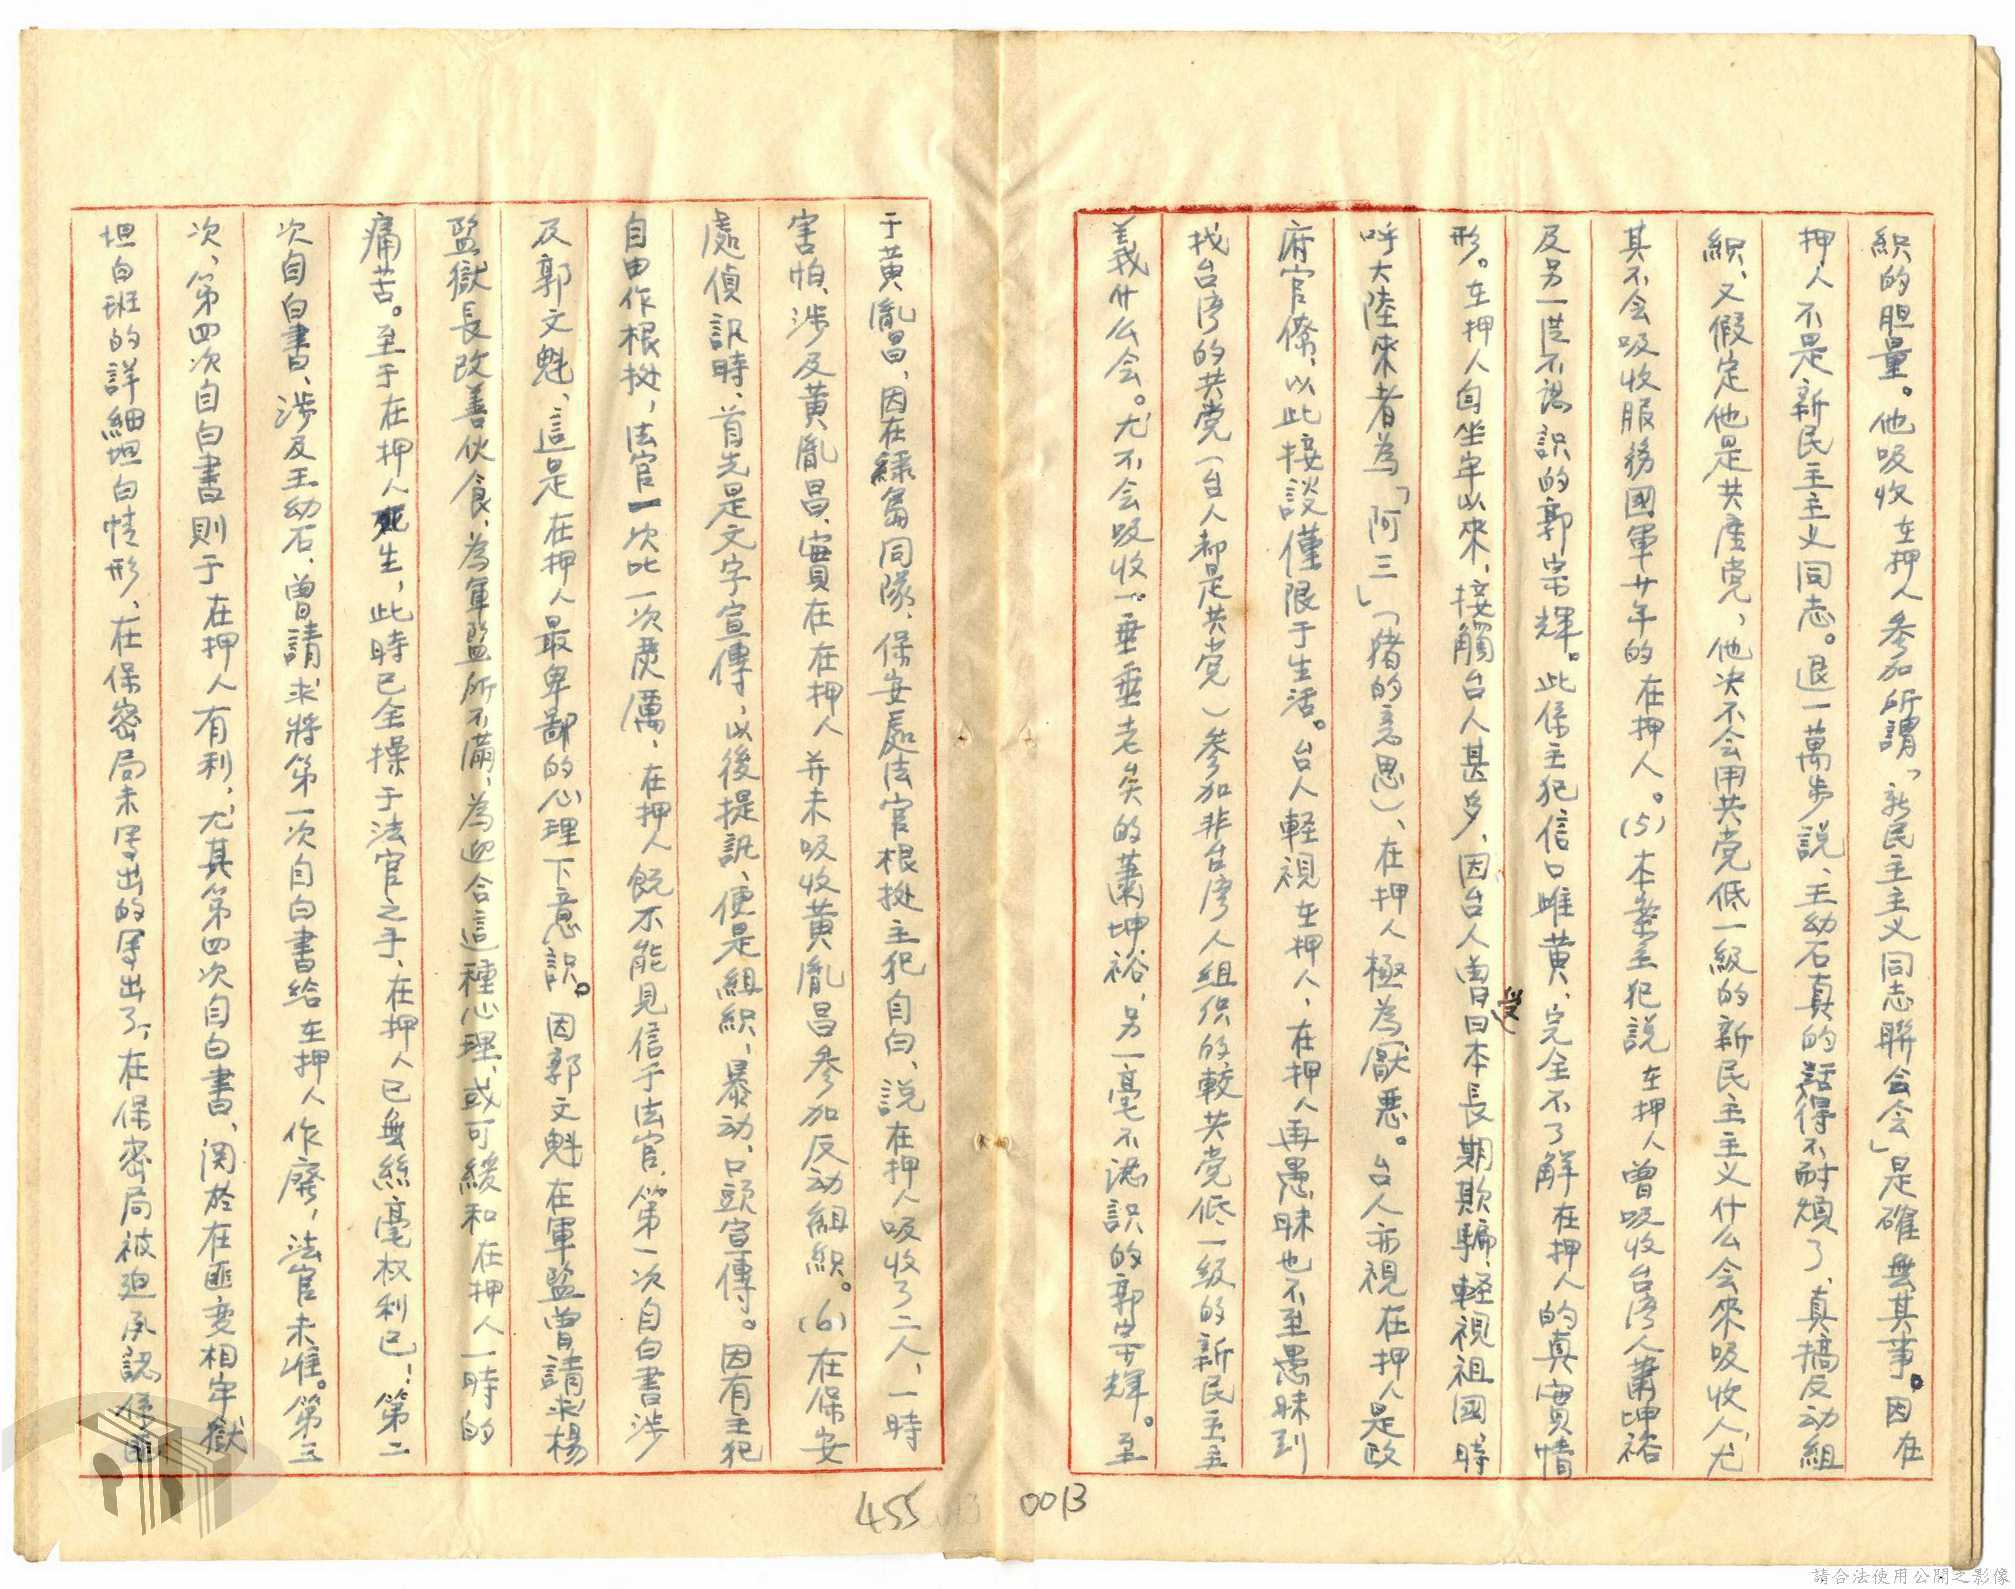 織的胆量。他吸收在押人参加所謂「新民主主义同志聯合会」是確無其事。因在
押人不是新民主主义同志。退一萬步説、王幼石真的話得不耐煩了、真搞反动組
織、又假定他是共產党，他决不会用共党低一級的新民主主义什么会來吸收人，尤
其不会吸收服務國軍廿年的在押人。(5)本案主犯説在押人曾吸收台湾人蕭坤裕
及另一從不認識的郭宗輝。此係主犯信口雌黄、完全不了解在押人的真實情
形。在押人自坐牢以來，接觸台人甚多、因台人曾受日本長期欺騙，軽視祖國，時
呼大陸來者為「阿三」「猪的意思）、在押人極為厭惡。台人亦視在押人是政
府官僚、以此接談僅限于生活。台人軽視在押人，在押人再愚昧也不至愚昧到
找台湾的共党（台人都是共党）参加非台湾人組织的較共党低一級的新民主主
義什么会。尤不会吸收一垂垂老矣的蕭坤裕，另一毫不認識的郭宗輝。至
于黄胤昌，因在緑島同隊、保安處法官根据主犯自白、説在押人吸收了二人，一時
害怕、涉及黄胤昌、實在在押人并未吸收黄胤昌参加反动組織。(6)在保安
處偵訊時、首先是文字宣傳，以後提訊、便是組織，暴动、口頭宣傳。因有主犯
自由作根据，法官一次比一次严厲、在押人既不能見信于法官，第一次自白書涉
及郭文魁、這是在押人最卑鄙的心理下意識。因郭文魁在軍監曾請求楊
監獄長改善伙食，為軍監所不滿，為迎合這種心理，或可緩和在押人一時的
痛苦。至于在押人死生，此時已全操于法官之手、在押人已無絲毫权利已；第二
次自白書、涉及王幼石，曾請求將第一次自白書給在押人作廢，法官未准。第三
次、第四次自白書則于在押人有利，尤其第四次自白書、関於在匪変相牢獄
坦白班的詳細坦白情形、在保密局未写出的写出了，在保密局被廹承認係匪
455
0013
請合法使用公開之影像